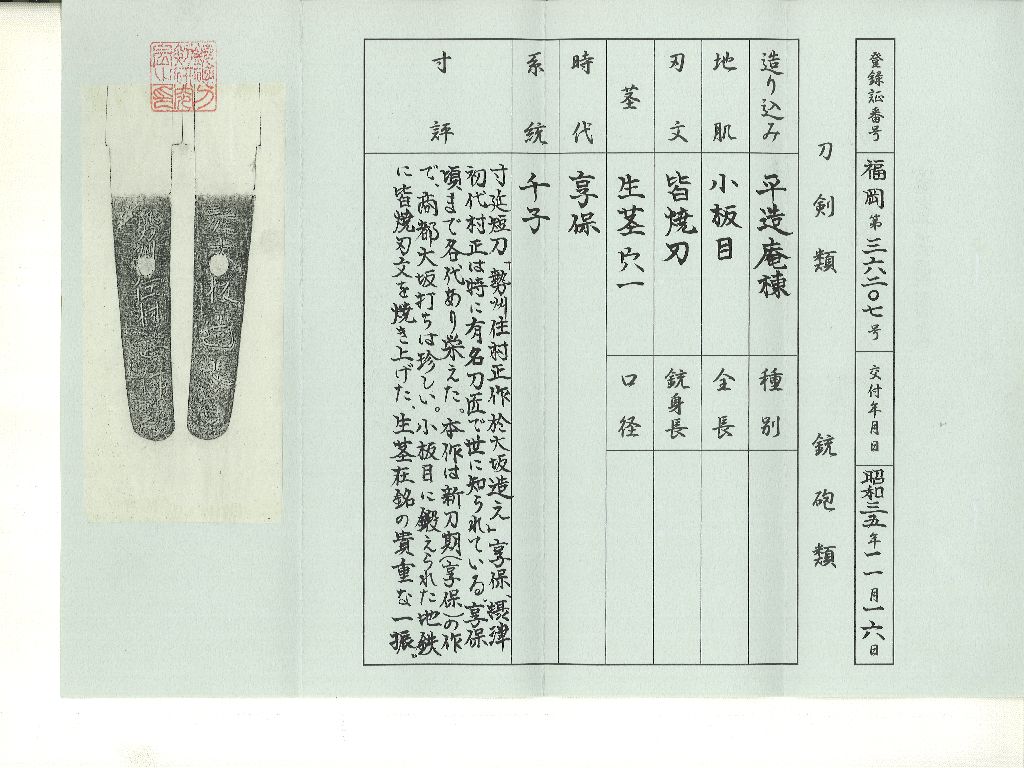 登録証番号 福岡第三六二〇七号 交付年月日 昭和三五年一一月一六日
刀剣類 銃砲類
造り込み 平造庵棟 種別
地肌 小板目 全長
刃文 皆焼刃 銃身長
茎 生茎穴一 口径
時代 享保
系統 千子
寸評
寸延短刀「勢州住村正作於大坂造之」享保、摂津
初代村正は時に有名刀匠で世に知られている。享保
頃まで各代あり栄えた。本作は新刀期(享保)の作
で、商都大坂打ちは珍しい。小板目に鍛えられた地鉄
に皆焼刃文を焼き上げた、生茎在銘の貴重な一振。